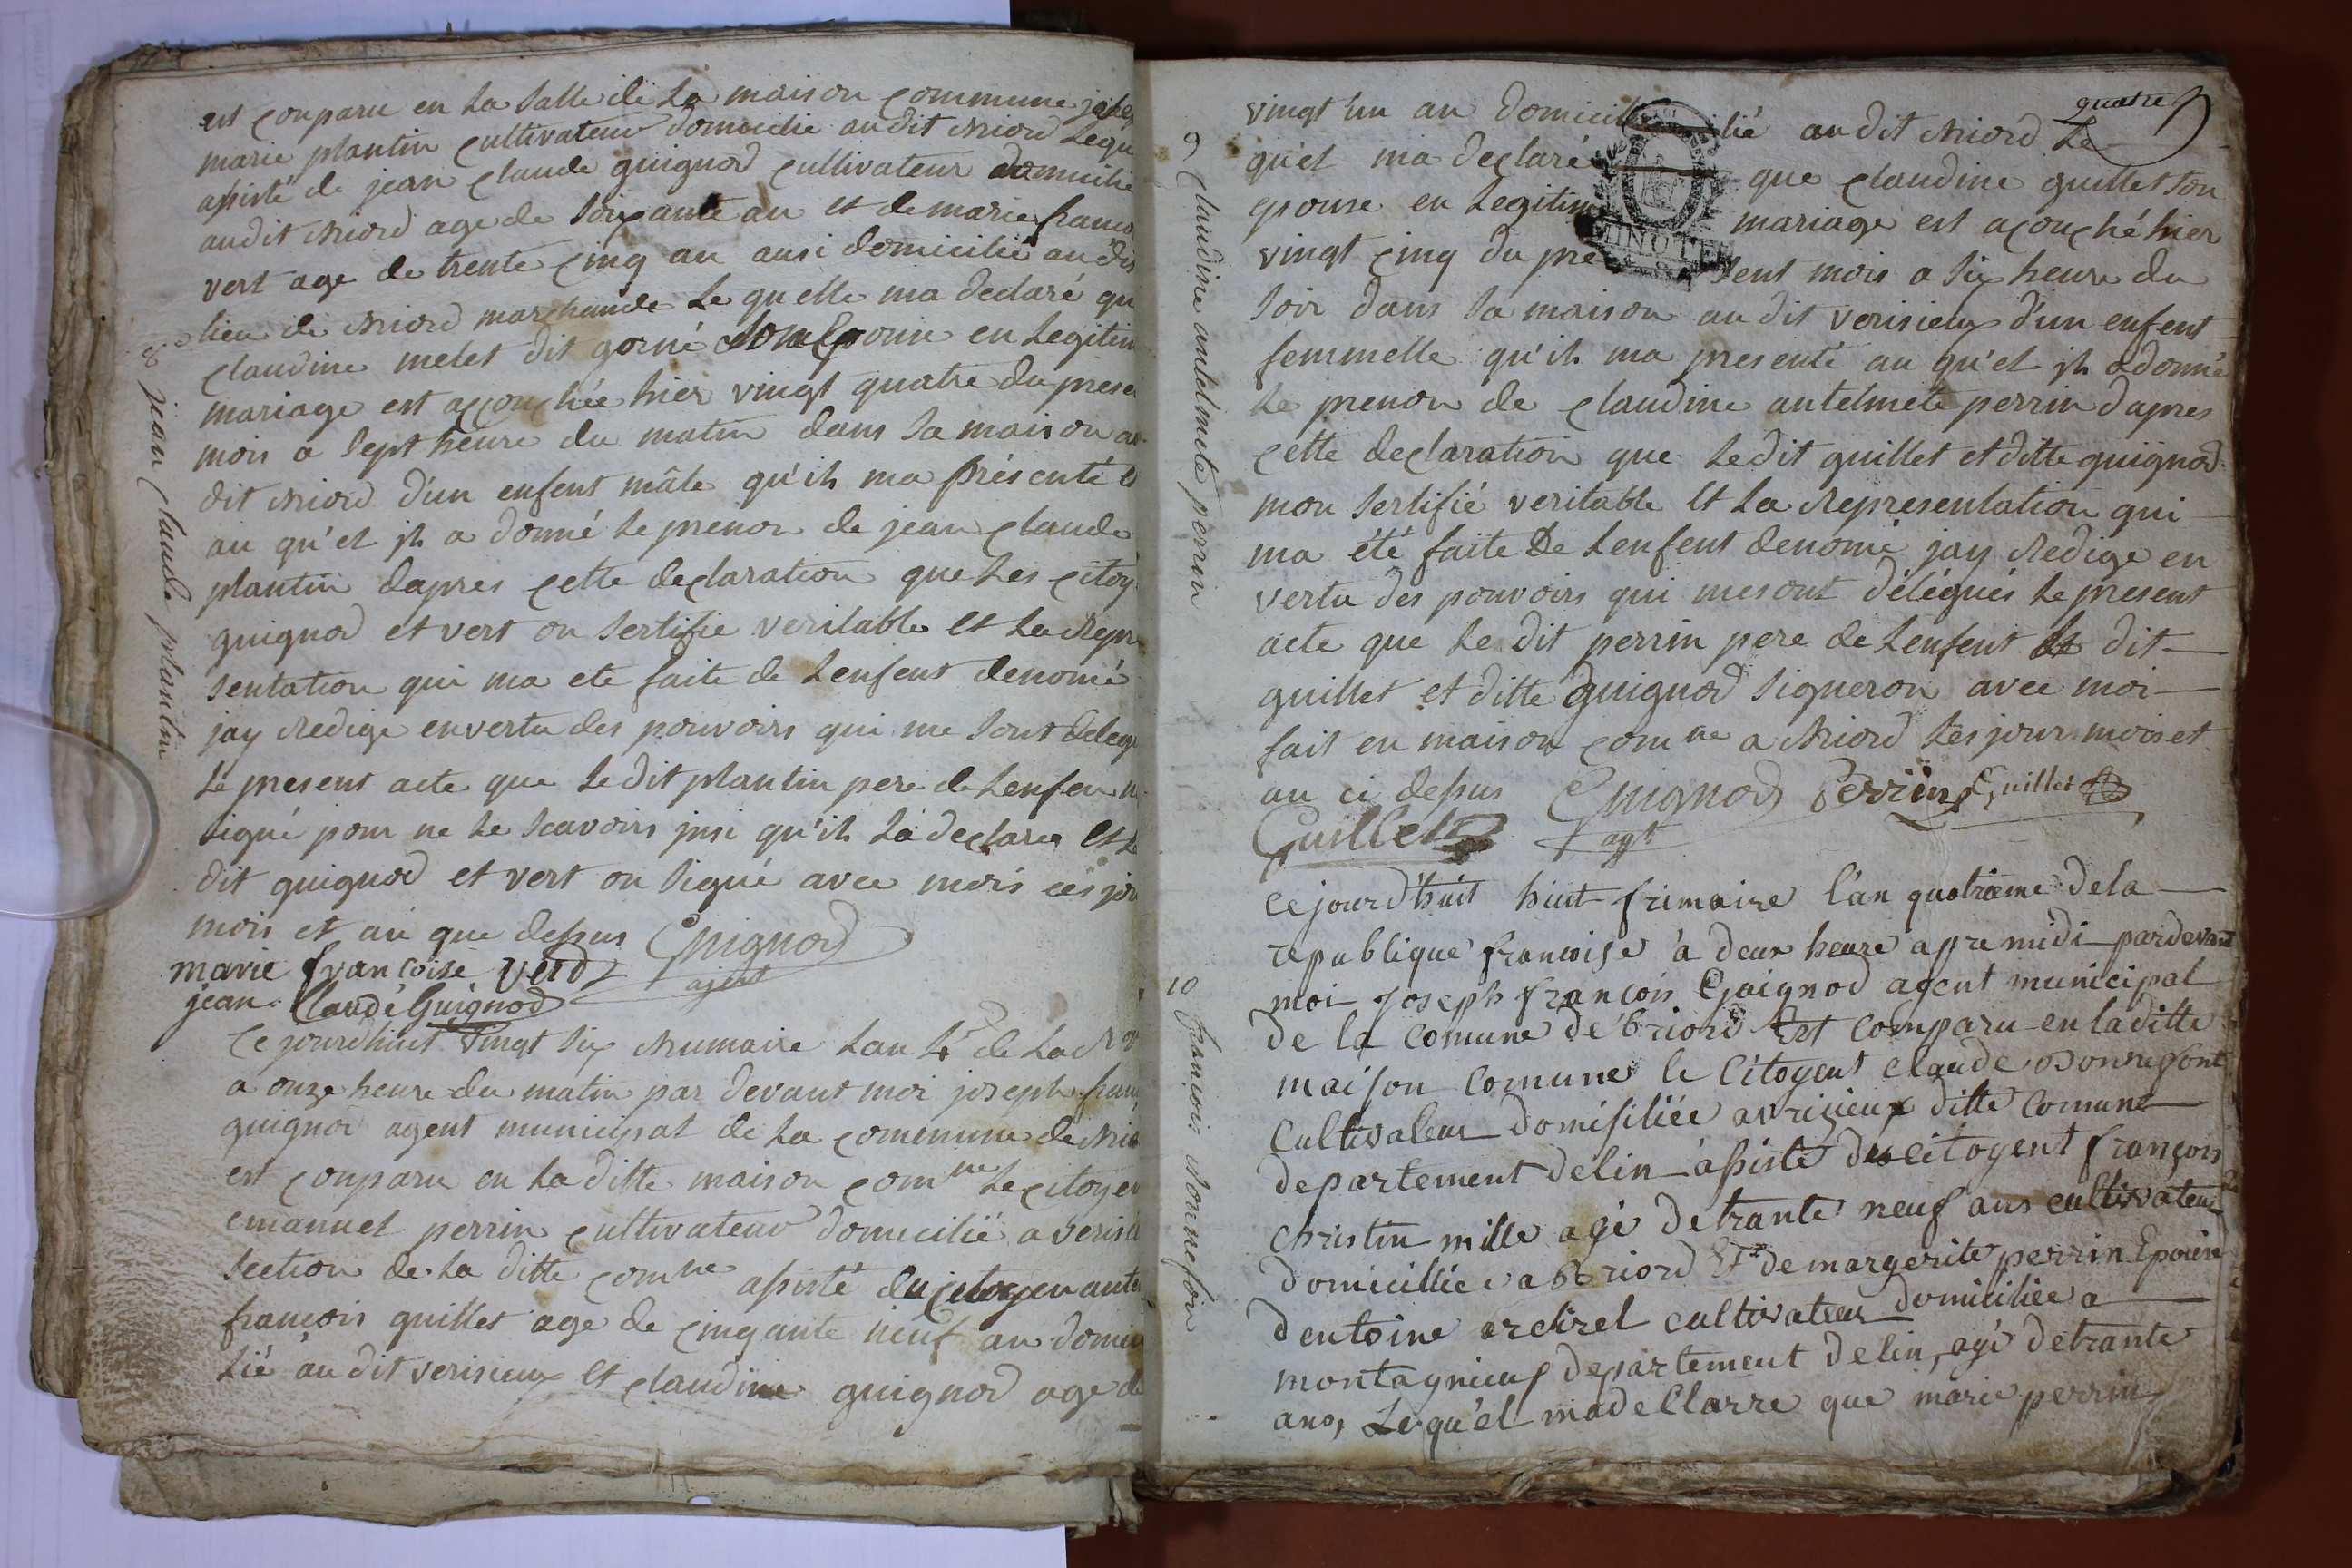 est conparu en la salle de la maison commune
marie plantin cultivateur domicilie audit Briord Lequ
assisté de jean claude guignod cultivateur domicilie
audit Briord age de soixante an et de marie franco
vert age de trente cinq an ausi domicilié au dis
lieu de Briord marchande Le quelle ma declaré qu
claudine melet dit gorné son Epouse en Legitim
mariage est acçouchée hier vingt quatre du prese
mois a sept heure du matin dans sa maison au
dit Briord d'un enfent mâle qu'ih ma présenté e
au qu'el jh a donné le prenon de jean claude
plantin dapres cette declaration que Les citoy
guignod et vert on sertifie veritable et La Repre
sentation qui ma ete faite de Lenfent denomé
jay Redige envertu des pouvoirs qui me sont deleg
Le present acte que Le dit plantin pere de Lenfen n
signé pour ne Le scavoirs jnsi qu'ih La declare et L
dit guignod et vert on signé avec mois ces jou
mois et an que dessus Guignod
marie françoise verd ajent
jean Claude Guignod
8 jean claude plantin
Ce jourdhuit vingt six Brumaire Lan 4e de La R
a onze heure du matin par devant moi joseph franç
guignod agent municipal de La commune de Brio
est conparu en La ditte maison comne Le citoyen
emanuel perrin cultivateur domicilié a veris
section de La ditte comne assisté du citoyen ante
françois guillet age de cinqante neuf an domici
Lié au dit verisieux et claudine guignod age de
quatre
vingt hun an domicilié au dit Briord Le
qu'el ma declaré que claudine guillet son
epouse en Legitime mariage est açouché hier
vingt cinq du present mois a six heure du
soir dans sa maison au dit verisieux d'un enfent
femmelle qu'ih ma presenté au qu'el jh a donné
Le prenon de claudine antelmete perrin dapres
cette declaration que Le dit guillet et ditte guignod
mon sertifié veritable et La Representation qui
ma été faite De Lenfent denomé jay Redige en
vertu des pouvoirs qui mesont délégués Le present
acte que Le dit perrin pere de Lenfent Le dit
guillet et ditte guignod signeron avec moi
fait en maison comne a Briord Les jour mois et
an ci dessus Guignod Perrin Guillet
Guillet agt
9 claudine antelmete perrin
MINUTE
Ce jourd'huit huit frimaire l'an quatrieme de la
republique françoise à deux heure apre midi pardevant
moi joseph françois Guignod agent municipal
de la comune de Briord Est comparu en la ditte
maison comune le Citoyent claude Bonnefont
Cultivateur domisiliée a vrizieux ditte comune
departement de lin assiste du citoyent françois
christin mille agé de trante neuf ans cultivateur
domicilliée a Briord Et de margerite perrin Epouse
dentoine cultivateur domiciliée a
montagnieuf departement de lin, agé de trante
ans, Le qu'el ma dellarre que marie perrin
10 françois Bonnefoin